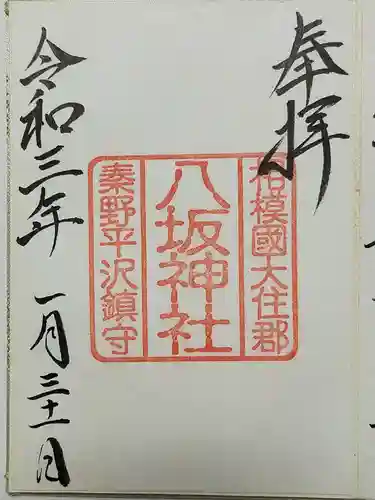 奉拝
相模國大住郡
八坂神社
秦野平沢鎮守
令和三年一月三十一日